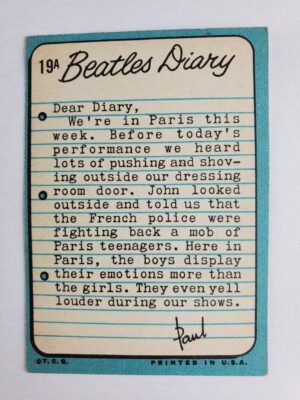 19A Beatles Diary
Dear Diary,
We're in Paris this
week. Before today's
performance we heard
lots of pushing and shov-
ing outside our dressing
room door. John looked
outside and told us that
the French police were
fighting back a mob of
Paris teenagers. Here in
Paris, the boys display
their emotions more than
the girls. They even yell
louder during our shows.
Paul
©T.C.G. PRINTED IN U.S.A.